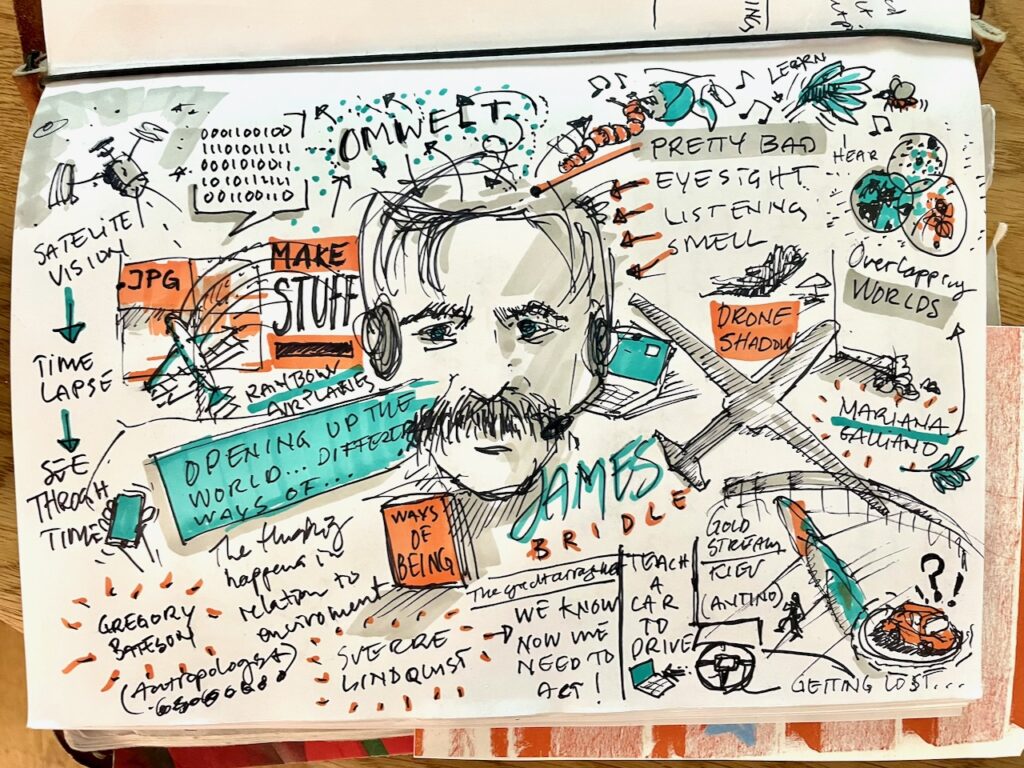 SATELITE
VISION
TIME
LAPSE
SEE
THROGH
TIME
0001100100
OMWELT
LEARN
PRETTY BAD
EYESIGHT
LISTENING
SMELL
HEAR
Overlapping
WORLDS
JPG
MAKE
STUFF
RAINBOW
AIRPLANES
DRONE
SHADOW
MARIANA
GALLIANO
OPENING UP THE
WORLD... DIFFERE
WAYS OF...
JAMES
BRIDLE
WAYS
OF
BEING
The thinking
happens in
relation to
enviroment
GREGORY
BATESON
(Antropologist)
SVERRE
LINDQUIST
WE KNOW
NOW WE
NEED TO
ACT!
TEACH
A
CAR
TO
DRIVE
GOLD
STREAM
KIEV
?!
GETTING LOST...